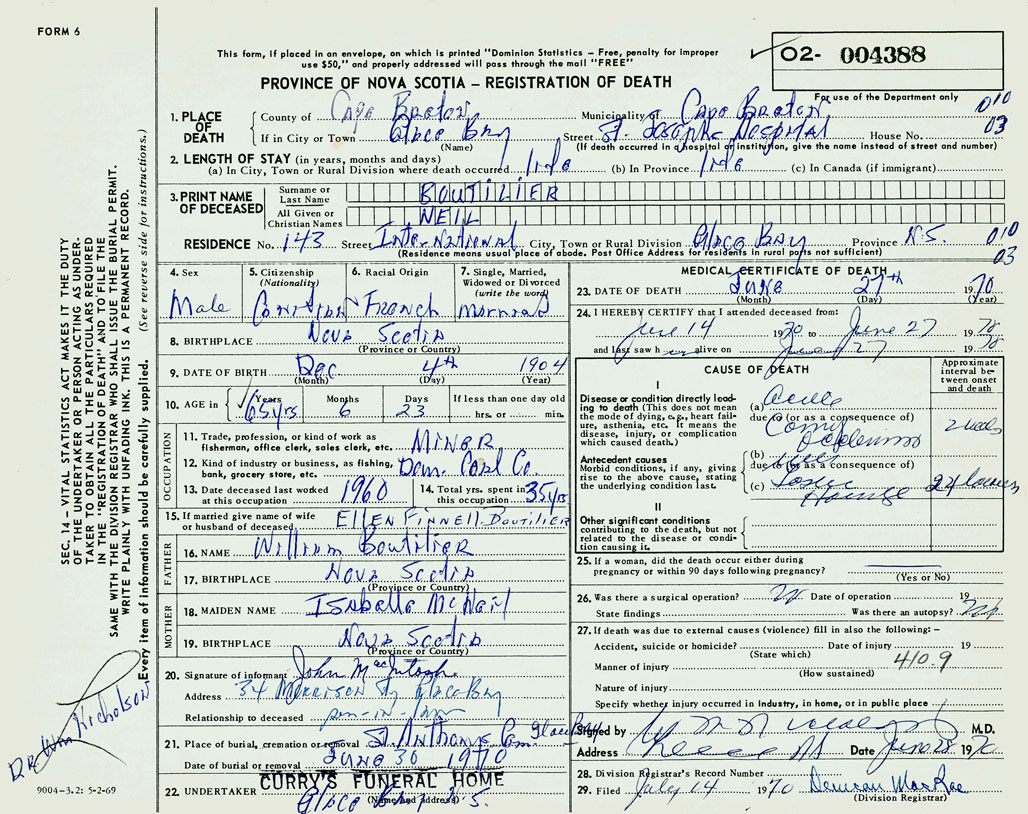 FORM 6
This form, if placed in an envelope, on which is printed "Dominion Statistics – Free, penalty for improper
use $50," and properly addressed will pass through the mail "FREE"
O2- 004388
PROVINCE OF NOVA SCOTIA – REGISTRATION OF DEATH
For use of the Department only
1. PLACE OF DEATH
County of Cape Breton Municipality of Cape Breton 010
If in City or Town Glace Bay Street St. Josephs Hospital House No. 03
(Name) (If death occurred in a hospital or institution, give the name instead of street and number)
2. LENGTH OF STAY (in years, months and days)
(a) In City, Town or Rural Division where death occurred Life (b) In Province Life (c) In Canada (if immigrant)
3. PRINT NAME OF DECEASED
Surname or Last Name BOUTILIER
All Given or Christian Names NEIL
RESIDENCE No. 143 Street International City, Town or Rural Division Glace Bay Province N.S. 010
(Residence means usual place of abode. Post Office Address for residents in rural parts not sufficient) 03
4. Sex Male
5. Citizenship (Nationality) Canadian
6. Racial Origin French
7. Single, Married, Widowed or Divorced (write the word) Married
8. BIRTHPLACE Nova Scotia
(Province or Country)
9. DATE OF BIRTH Dec 4th 1904
(Month) (Day) (Year)
10. AGE in Years 65 yrs Months 6 Days 23 If less than one day old hrs. or min.
OCCUPATION
11. Trade, profession, or kind of work as fisherman, office clerk, sales clerk, etc. Miner
12. Kind of industry or business, as fishing, bank, grocery store, etc. Dom. Coal Co.
13. Date deceased last worked at this occupation 1960
14. Total yrs. spent in this occupation 35 yrs
15. If married give name of wife or husband of deceased Ellen Finnell Boutilier
FATHER
16. NAME William Boutilier
17. BIRTHPLACE Nova Scotia
(Province or Country)
MOTHER
18. MAIDEN NAME Isabelle McNeil
19. BIRTHPLACE Nova Scotia
(Province or Country)
20. Signature of informant John MacIntosh
Address 34 Morrison St, Glace Bay
Relationship to deceased son-in-law
21. Place of burial, cremation or removal St Anthonys Cem. Glace Bay
Date of burial or removal June 30 1970
22. UNDERTAKER CURRY'S FUNERAL HOME
Glace Bay N.S.
(Name and address)
MEDICAL CERTIFICATE OF DEATH
23. DATE OF DEATH June 27th 1970
(Month) (Day) (Year)
24. I HEREBY CERTIFY that I attended deceased from:
June 14 1970 to June 27 1970
and last saw h im alive on June 27 1970
CAUSE OF DEATH
Approximate interval between onset and death
I
Disease or condition directly leading to death (This does not mean the mode of dying, e.g., heart failure, asthenia, etc. It means the disease, injury, or complication which caused death.)
(a) Acute
due to (or as a consequence of)
2 weeks
Antecedent causes
Morbid conditions, if any, giving rise to the above cause, stating the underlying condition last.
(b)
due to (or as a consequence of)
(c)
II
Other significant conditions
contributing to the death, but not related to the disease or condition causing it.
25. If a woman, did the death occur either during pregnancy or within 90 days following pregnancy?
(Yes or No)
26. Was there a surgical operation? Date of operation 19
State findings Was there an autopsy?
27. If death was due to external causes (violence) fill in also the following: –
Accident, suicide or homicide? Date of injury 19
(State which)
Manner of injury 410.9
(How sustained)
Nature of injury
Specify whether injury occurred in Industry, in home, or in public place
Signed by M.D.
Address Date June 28 1970
28. Division Registrar's Record Number
29. Filed July 14 1970 Duncan MacRae
(Division Registrar)
SEC. 14 – VITAL STATISTICS ACT MAKES IT THE DUTY
OF THE UNDERTAKER OR PERSON ACTING AS UNDER-
TAKER TO OBTAIN ALL THE PARTICULARS REQUIRED
IN THE "REGISTRATION OF DEATH" AND TO FILE THE
SAME WITH THE DIVISION REGISTRAR WHO SHALL ISSUE THE BURIAL PERMIT.
WRITE PLAINLY WITH UNFADING INK. THIS IS A PERMANENT RECORD.
Every item of information should be carefully supplied. (See reverse side for instructions.)
DR Wm Nicholson
9004–3.2: 5-2-69